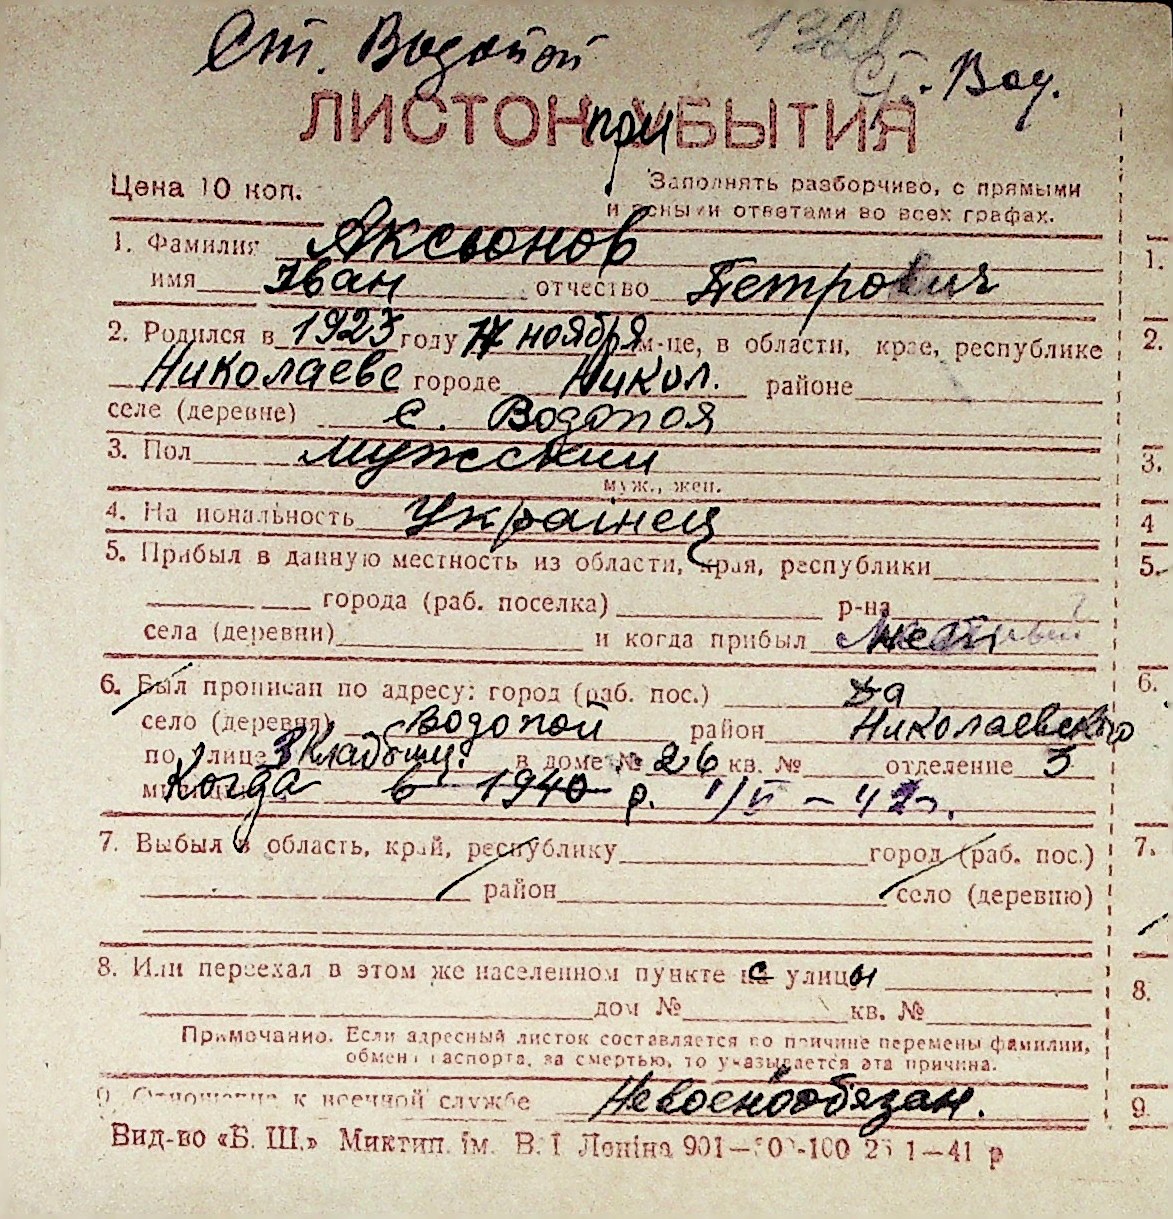 Ст. Водопой
132
Ст. Вод.
ЛИСТОК при УБЫТИЯ
Цена 10 коп.
Заполнять разборчиво, с прямыми
и ясными ответами во всех графах.
1. Фамилия Аксьонов
имя Іван отчество Петрович
2. Родился в 1923 году 17 ноября м-це, в области, крае, республике
Николаеве городе Никол. районе
селе (деревне) с. Водопоя
3. Пол мужский
муж., жен.
4. Национальность Украінец
5. Прибыл в данную местность из области, края, республики
города (раб. поселка) р-на
села (деревни) и когда прибыл
6. Был прописан по адресу: город (раб. пос.)
село (деревня) Водопой район Николаевского
по улице 3 Кладбищ. в доме № 26 кв. № отделение 3
Когда в 1940 р.
7. Выбыл в область, край, республику город (раб. пос.)
район село (деревню)
8. Или переехал в этом же населенном пункте с улицы
дом № кв. №
Примечание. Если адресный листок составляется по причине перемены фамилии,
обмена паспорта, за смертью, то указывается эта причина.
9. Отношение к военной службе Невоенообязан.
Вид-во «Б. Ш.» Миктип. ім. В. І Леніна 1—41 р
1.
2.
3.
4
5.
6.
7.
8.
9.